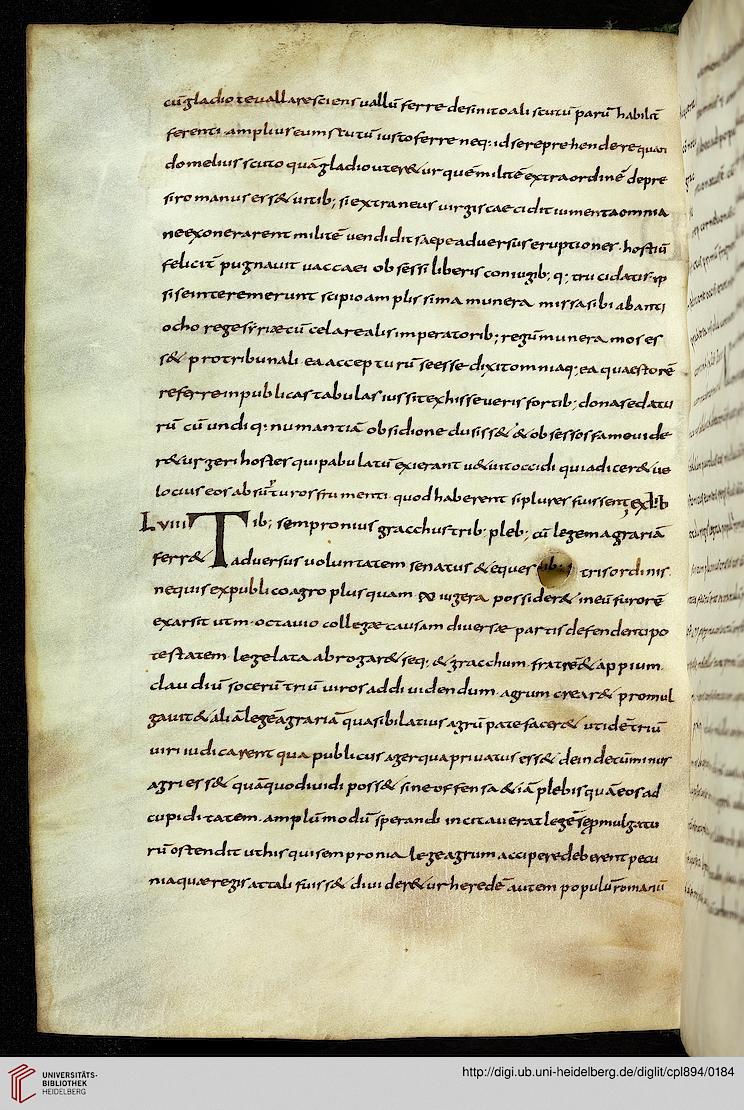 cū gladio te vallare sciens vallū ferre desinito alii scutū parū habilit
ferenti amplius eum scutū iusto ferre neq; id se reprehendere quan
do melius scuto quā gladio uteret & ur quē militē extra ordinē depre
si romanus esset uitib; si extraneus uirgis caecidit iumenta omnia
ne exonerarent militē uendidit saepe aduersus eruptiones hostiū
felicit pugnauit uaccaei obsessi liberis coniugib; q; trucidatis ip
si se interemerunt scipio amplissima munera missa sibi ab anti
ocho rege syriae cū celare aliis imperatorib; regū munera mos es
s& pro tribunali ea accepturū se esse dixit omniaq; ea quaestorē
referre in publicas tabulas iussit ex his se ueris fortib; dona se datu
rū cū undiq; numantiā obsidione clusiss& & obsessos fame uide
r& urgeri hostes qui pabulatū exierant u&uit occidi qui adicer& ue
locius eos absūturos frumenti quod haberent si plures fuissent ex lib
Lviiii Tib; sempronius gracchus trib; pleb; cū legem agrariā
ferr& aduersus uoluntatem senatus & eques tris ordinis
nequis ex publico agro plus quam ∞ iugera possider& in eū furorē
exarsit ut m octauio collegae causam diuersae partis defendenti po
testatem lege lata abrogar& seq; & gracchum fratrē & appium
claudiū socerū triū uiros ad diuidendum agrum crear& promul
gauit & aliā legē agrariā qua sibi latius agrū patefacer& ut idē triū
uiri iudicarent qua publicus ager qua priuatus ess& dein de cū minus
agri ess& quā quod diuidi poss& sine offensa & iā plebis quā eos ad
cupiditatem amplū modū sperandi incitauerat legē se promulgatu
rū ostendit ut his qui sempronia lege agrum accipere deberent pecu
nia quae regis attali fuiss& diuider&ur heredē autem populū romanū
UNIVERSITÄTS-
BIBLIOTHEK
HEIDELBERG
http://digi.ub.uni-heidelberg.de/diglit/cpl894/0184